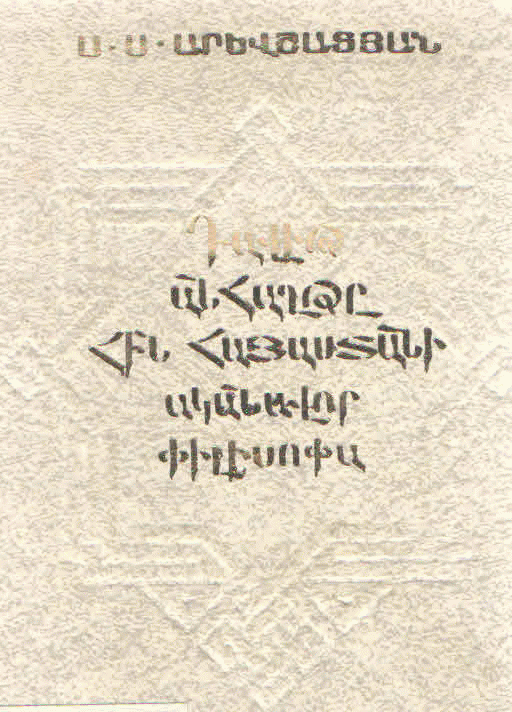 Ս · Ս · ԱՐԵՎՇԱՏՅԱՆ
Դավիթ
Անհաղթը
Հին Հայաստանի
ականավոր
փիլիսոփա